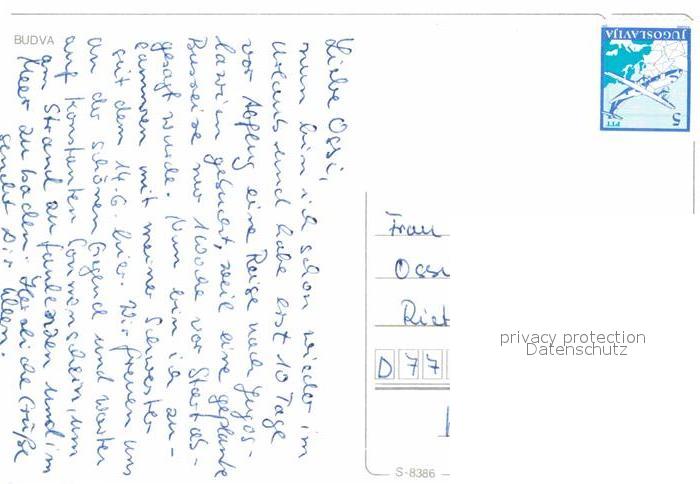 BUDVA
Liebe Ossi,
nun bin ich schon wieder im
Urlaub und habe erst 10 Tage
vor Abflug eine Reise nach Jugos-
lawien gebucht, weil eine geplante
Busreise nur 1 Woche vor Start ab-
gesagt wurde. Nun bin ich zu-
sammen mit meiner Schwester
seit dem 14.6. hier. Wir freuen uns
an der schönen Gegend und warten
auf konstanten Sonnenschein, um
am Strand zu faulenzen und im
Meer zu baden. Herzliche Grüße
sendet Dir
JUGOSLAVIJA
5
PTT
Frau
Ossi
Riet
D 77
privacy protection
Datenschutz
S-8386